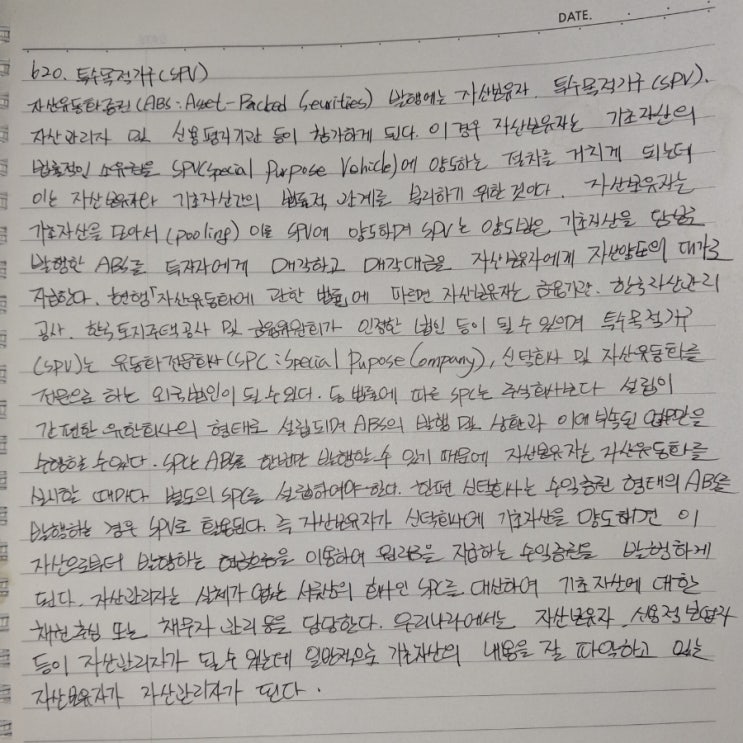 DATE.
620. 특수목적기구(SPV)
자산유동화증권(ABS: Asset-Packed Securities) 발행에는 자산보유자. 특수목적기구(SPV).
자산관리자 및 신용평가기관 등이 참가하게 된다. 이 경우 자산보유자는 기초자산의
법률적인 소유권을 SPV(Special Purpose Vehicle)에 양도하는 절차를 거치게 되는데
이는 자산보유자와 기초자산간의 법률적 관계를 분리하기 위한 것이다. 자산보유자는
기초자산을 모아서(pooling) 이를 SPV에 양도하며 SPV는 양도받은 기초자산을 담보로
발행한 ABS를 투자자에게 매각하고 매각대금을 자산보유자에게 자산양도의 대가로
지급한다. 현행「자산유동화에 관한 법률」에 따르면 자산보유자는 금융기관. 한국자산관리
공사. 한국토지주택공사 및 금융위원회가 인정한 법인 등이 될 수 있으며 특수목적기구
(SPV)는 유동화전문회사(SPC: Special Pupose Company), 신탁회사 및 자산유동화를
전문으로 하는 외국법인이 될 수 있다. 동 법률에 따른 SPC는 주식회사보다 설립이
간편한 유한회사의 형태로 설립되며 ABS의 발행 및 상환과 이에 부속된 업무만을
수행할 수 있다. SPC는 ABS를 한번만 발행할 수 있기 때문에 자산보유자는 자산유동화를
실시할 때마다 별도의 SPC를 설립하여야 한다. 한편 신탁회사는 수익증권 형태의 ABS를
발행하는 경우 SPV로 활용된다. 즉 자산보유자가 신탁회사에 기초자산을 양도하면 이
자산으로부터 발생하는 현금흐름을 이용하여 원리금을 지급하는 수익증권을 발행하게
된다. 자산관리자는 실체가 없는 서류상의 회사인 SPC를 대신하여 기초자산에 대한
채권 추심 또는 채무자 관리 등을 담당한다. 우리나라에서는 자산보유자. 신용정보업자
등이 자산관리자가 될 수 있는데 일반적으로 기초자산의 내용을 잘 파악하고 있는
자산보유자가 자산관리자가 된다.